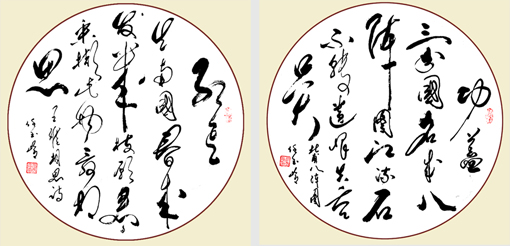 红豆
生南國春来
发几枝愿君多
采撷此物最相
思
王维相思诗
功盖
三國名成八
阵图江流石
不转遗恨失吞
吴
杜甫八阵图